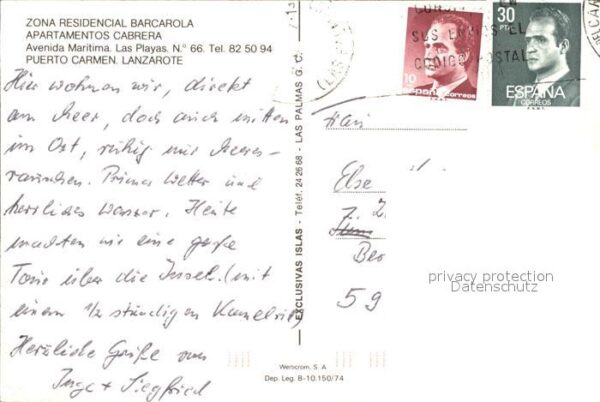 ZONA RESIDENCIAL BARCAROLA
APARTAMENTOS CABRERA
Avenida Marítima. Las Playas. N.º 66. Tel. 82 50 94
PUERTO CARMEN. LANZAROTE
Hier wohnen wir, direkt
am Meer, doch auch mitten
im Ort, ruhig mit Meeres-
rauschen. Prima Wetter und
herrliches Wasser. Heute
machten wir eine große
Tour über die Insel. (mit
einem 1/2 stündigen Kamelritt)
Herzliche Grüße von
Inge + Siegfried
EXCLUSIVAS ISLAS - Teléf. 24 26 68 - LAS PALMAS G. C.
Werticrom, S. A
Dep. Leg. B-10.150/74
10
españa correos
30
PTA
ESPAÑA
CORREOS
EN
SUS
CODIGO POSTAL
Frau
Else
Z. Z.
59
privacy protection
Datenschutz